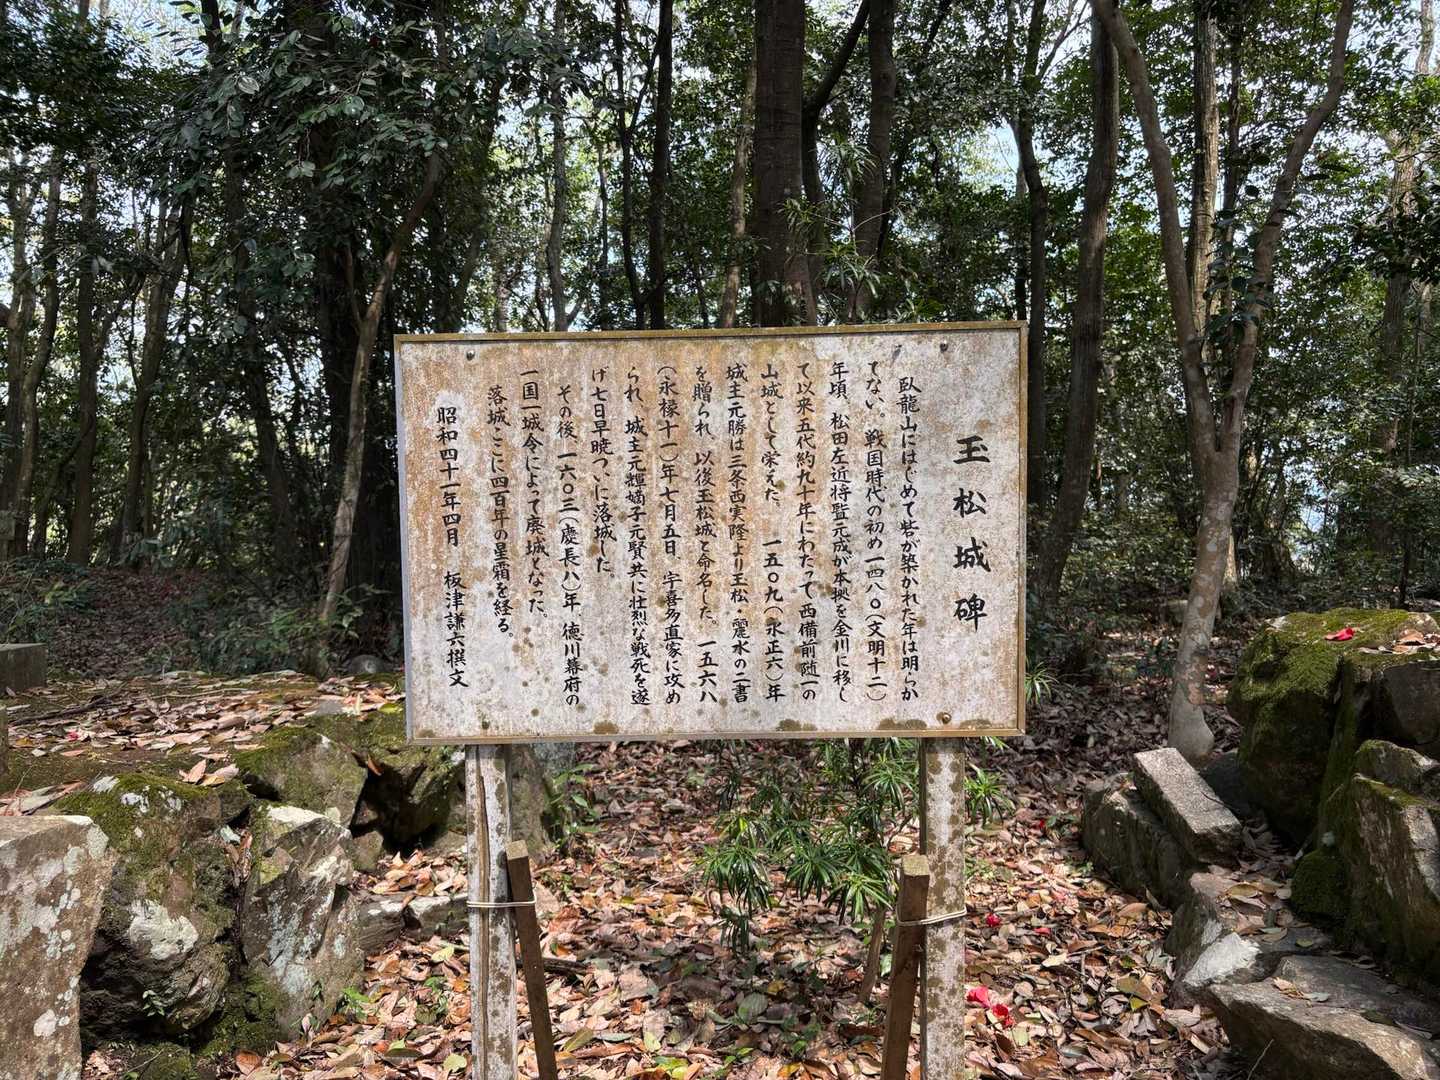 玉松城碑
臥龍山にはじめて砦が築かれた年は明らか
でない。戦国時代の初め一四八〇(文明十二)
年頃、松田左近将監元成が本拠を金川に移し
て以来五代約九十年にわたって西備前随一の
山城として栄えた。一五〇九(永正六)年
城主元勝は三条西実隆より玉松・麗水の二書
を贈られ、以後玉松城と命名した。一五六八
(永禄十一)年七月五日、宇喜多直家に攻め
られ、城主元輝嫡子元賢共に壮烈な戦死を遂
げ七日早暁ついに落城した。
その後、一六〇三(慶長八)年、徳川幕府の
一国一城令によって廃城となった。
落城、ここに四百年の星霜を経る。
昭和四十一年四月 板津謙六撰文